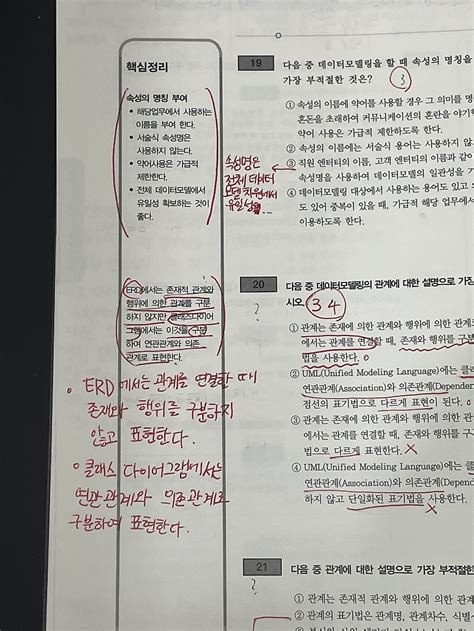 핵심정리
속성의 명칭 부여
• 해당업무에서 사용하는
이름을 부여 한다.
• 서술식 속성명은
사용하지 않는다.
• 약어사용은 가급적
제한한다.
• 전체 데이터모델에서
유일성 확보하는 것이
좋다.
속성명은
전체 데이터
모델 차원에서
유일성
19
다음 중 데이터모델링을 할 때 속성의 명칭을
가장 부적절한 것은?
3
① 속성의 이름에 약어를 사용할 경우 그 의미를 명
혼돈을 초래하여 커뮤니케이션의 혼란을 야기
약어 사용은 가급적 제한하도록 한다.
② 속성의 이름에는 서술식 용어는 사용하지 않
③ 직원 엔터티의 이름, 고객 엔터티의 이름과 같
속성명을 사용하여 데이터모델의 일관성을 가
④ 데이터모델링 대상에서 사용하는 용어도 있고
도 있어 중복이 있을 때, 가급적 해당 업무에서
이용하도록 한다.
ERD에서는 존재적 관계와
행위에 의한 관계를 구분
하지 않지만 클래스다이어
그램에서는 이것을 구분
하여 연관관계와 의존
관계로 표현한다.
• ERD에서는 관계를 연결할 때
존재와 행위를 구분하지
않고 표현한다.
• 클래스 다이어그램에서는
연관관계와 의존관계로
구분하여 표현한다.
20
다음 중 데이터모델링의 관계에 대한 설명으로 가장
시오.
3 4
?
① 관계는 존재에 의한 관계와 행위에 의한 관계로
에서는 관계를 연결할 때, 존재와 행위를 구분
법을 사용한다.
② UML(Unified Modeling Language)에는 클래스
연관관계(Association)와 의존관계(Dependency
점선의 표기법으로 다르게 표현이 된다.
③ 관계는 존재에 의한 관계와 행위에 의한 관계
에서는 관계를 연결할 때, 존재와 행위를 구분
법으로 다르게 표현한다.
④ UML(Unified Modeling Language)에는 클래
연관관계(Association)와 의존관계(Depend
하지 않고 단일화된 표기법을 사용한다.
21
다음 중 관계에 대한 설명으로 가장 부적절한
?
① 관계는 존재적 관계와 행위에 의한 관계
② 관계의 표기법은 관계명, 관계차수, 식별